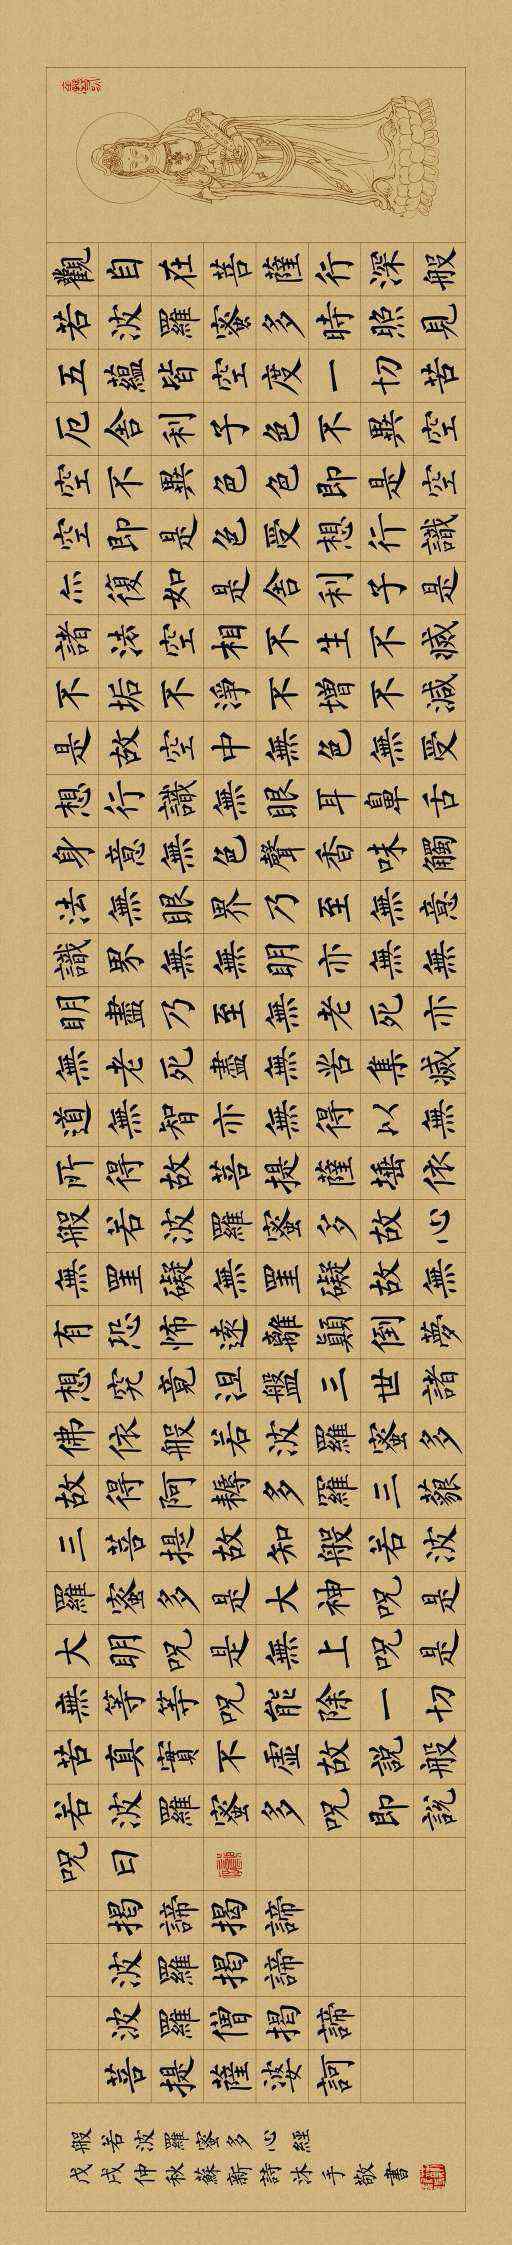 觀自在菩薩行深般
若波羅蜜多時照見
五蘊皆空度一切苦
厄舍利子色不異空
空不異色色即是空
空即是色受想行識
亦復如是舍利子是
諸法空相不生不滅
不垢不淨不增不減
是故空中無色無受
想行識無眼耳鼻舌
身意無色聲香味觸
法無眼界乃至無意
識界無無明亦無無
明盡乃至無老死亦
無老死盡無苦集滅
道無智亦無得以無
所得故菩提薩埵依
般若波羅蜜多故心
無罣礙無罣礙故無
有恐怖遠離顛倒夢
想究竟涅盤三世諸
佛依般若波羅蜜多
故得阿耨多羅三藐
三菩提故知般若波
羅蜜多是大神呪是
大明呪是無上呪是
無等等呪能除一切
苦真實不虛故說般
若波羅蜜多呪即說
呪曰
揭諦揭諦
波羅揭諦
波羅僧揭諦
菩提薩婆訶
般若波羅蜜多心經
戊戌仲秋蘇新詩沐手敬書